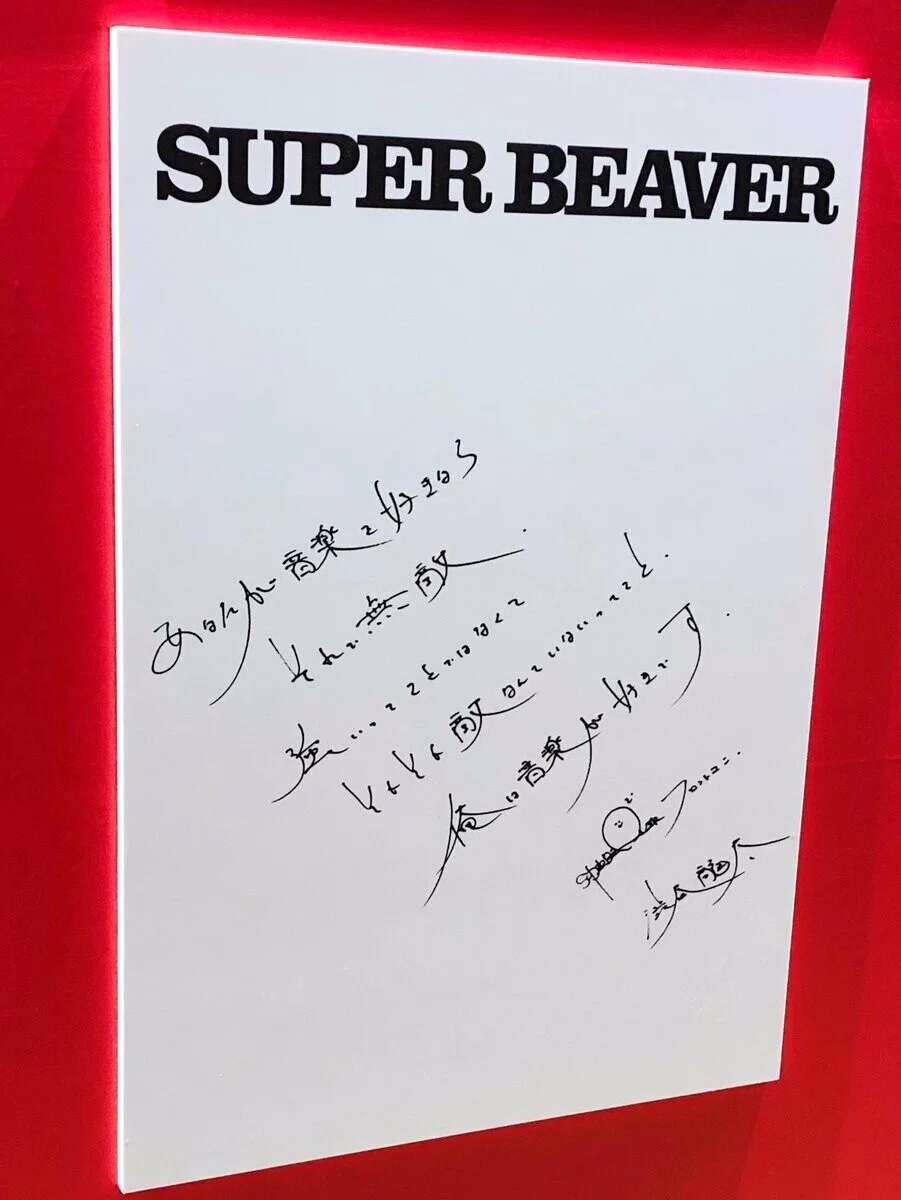 SUPER BEAVER
あなたが音楽を好きなら
それで無敵.
強いってことではなくて
そもそも敵なんていないってこと.
俺は音楽が好きです.
SUPER BEAVER フロントマン.
渋谷龍太